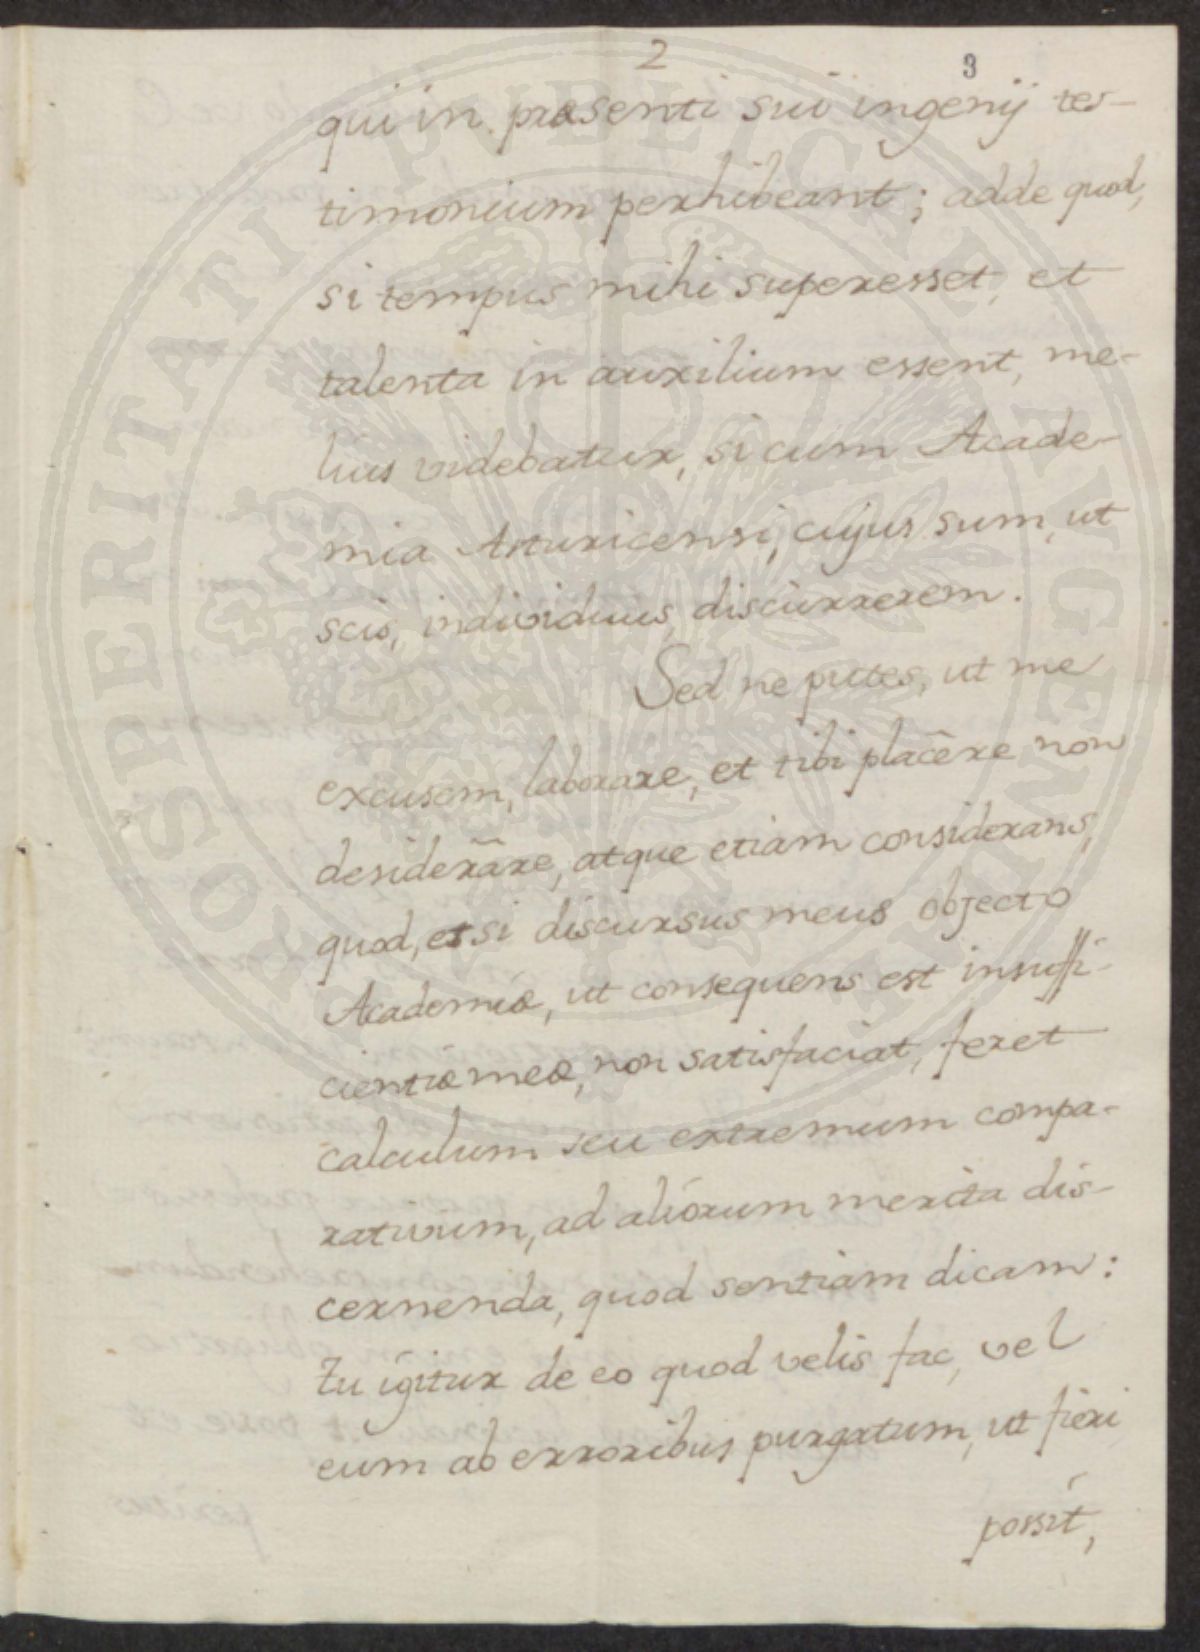 2
3
qui in præsenti sui ingenij tes-
timonium perhibeant; adde quod,
si tempus mihi superesset, et
talenta in auxilium essent, me-
lius videbatur, si cum Acade-
mia Asturicensi, cujus sum, ut
scis, individuus, discurrerem.
Sed ne putes, ut me
excusem, laborare, et tibi placêre non
desiderâre, atque etiam considerans,
quod, etsi discursus meus objecto
Academiæ, ut consequens est insuffi-
cientiæ meæ, non satisfaciat, feret
calculum seu extremum compa-
rativum, ad aliórum merita dis-
cernenda, quod sentiam dicam:
Tu ígitur de eo quod velis fac, vel
eum ab erroribus purgatum, ut fieri
possit,
PROSPERITATI PVBLICAE AVGENDAE